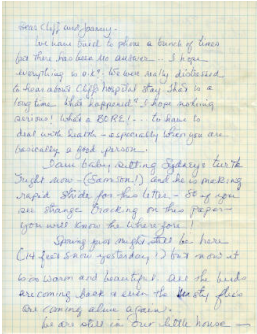 Dear Cliff and Joanny -
We have tried to phone a bunch of times
but there has been no answer... I hope
everything is o.k? We were really distressed
to hear about Cliff's hospital stay. That is a
long time. What happened? I hope nothing
serious! What a BORE! -- to have to
deal with health - especially when you are
basically a good person.
I am baby sitting Sydney's turtle
right now - (Samson!) and he is making
rapid strides for this letter - So if you
see strange tracking on this paper -
you will know the wherefore!
Spring you might still be here
(14 feet snow yesterday!) but now it
is so warm and beautiful. All the birds
are coming back & even the flies
are coming alive again.
We are still in our little house -